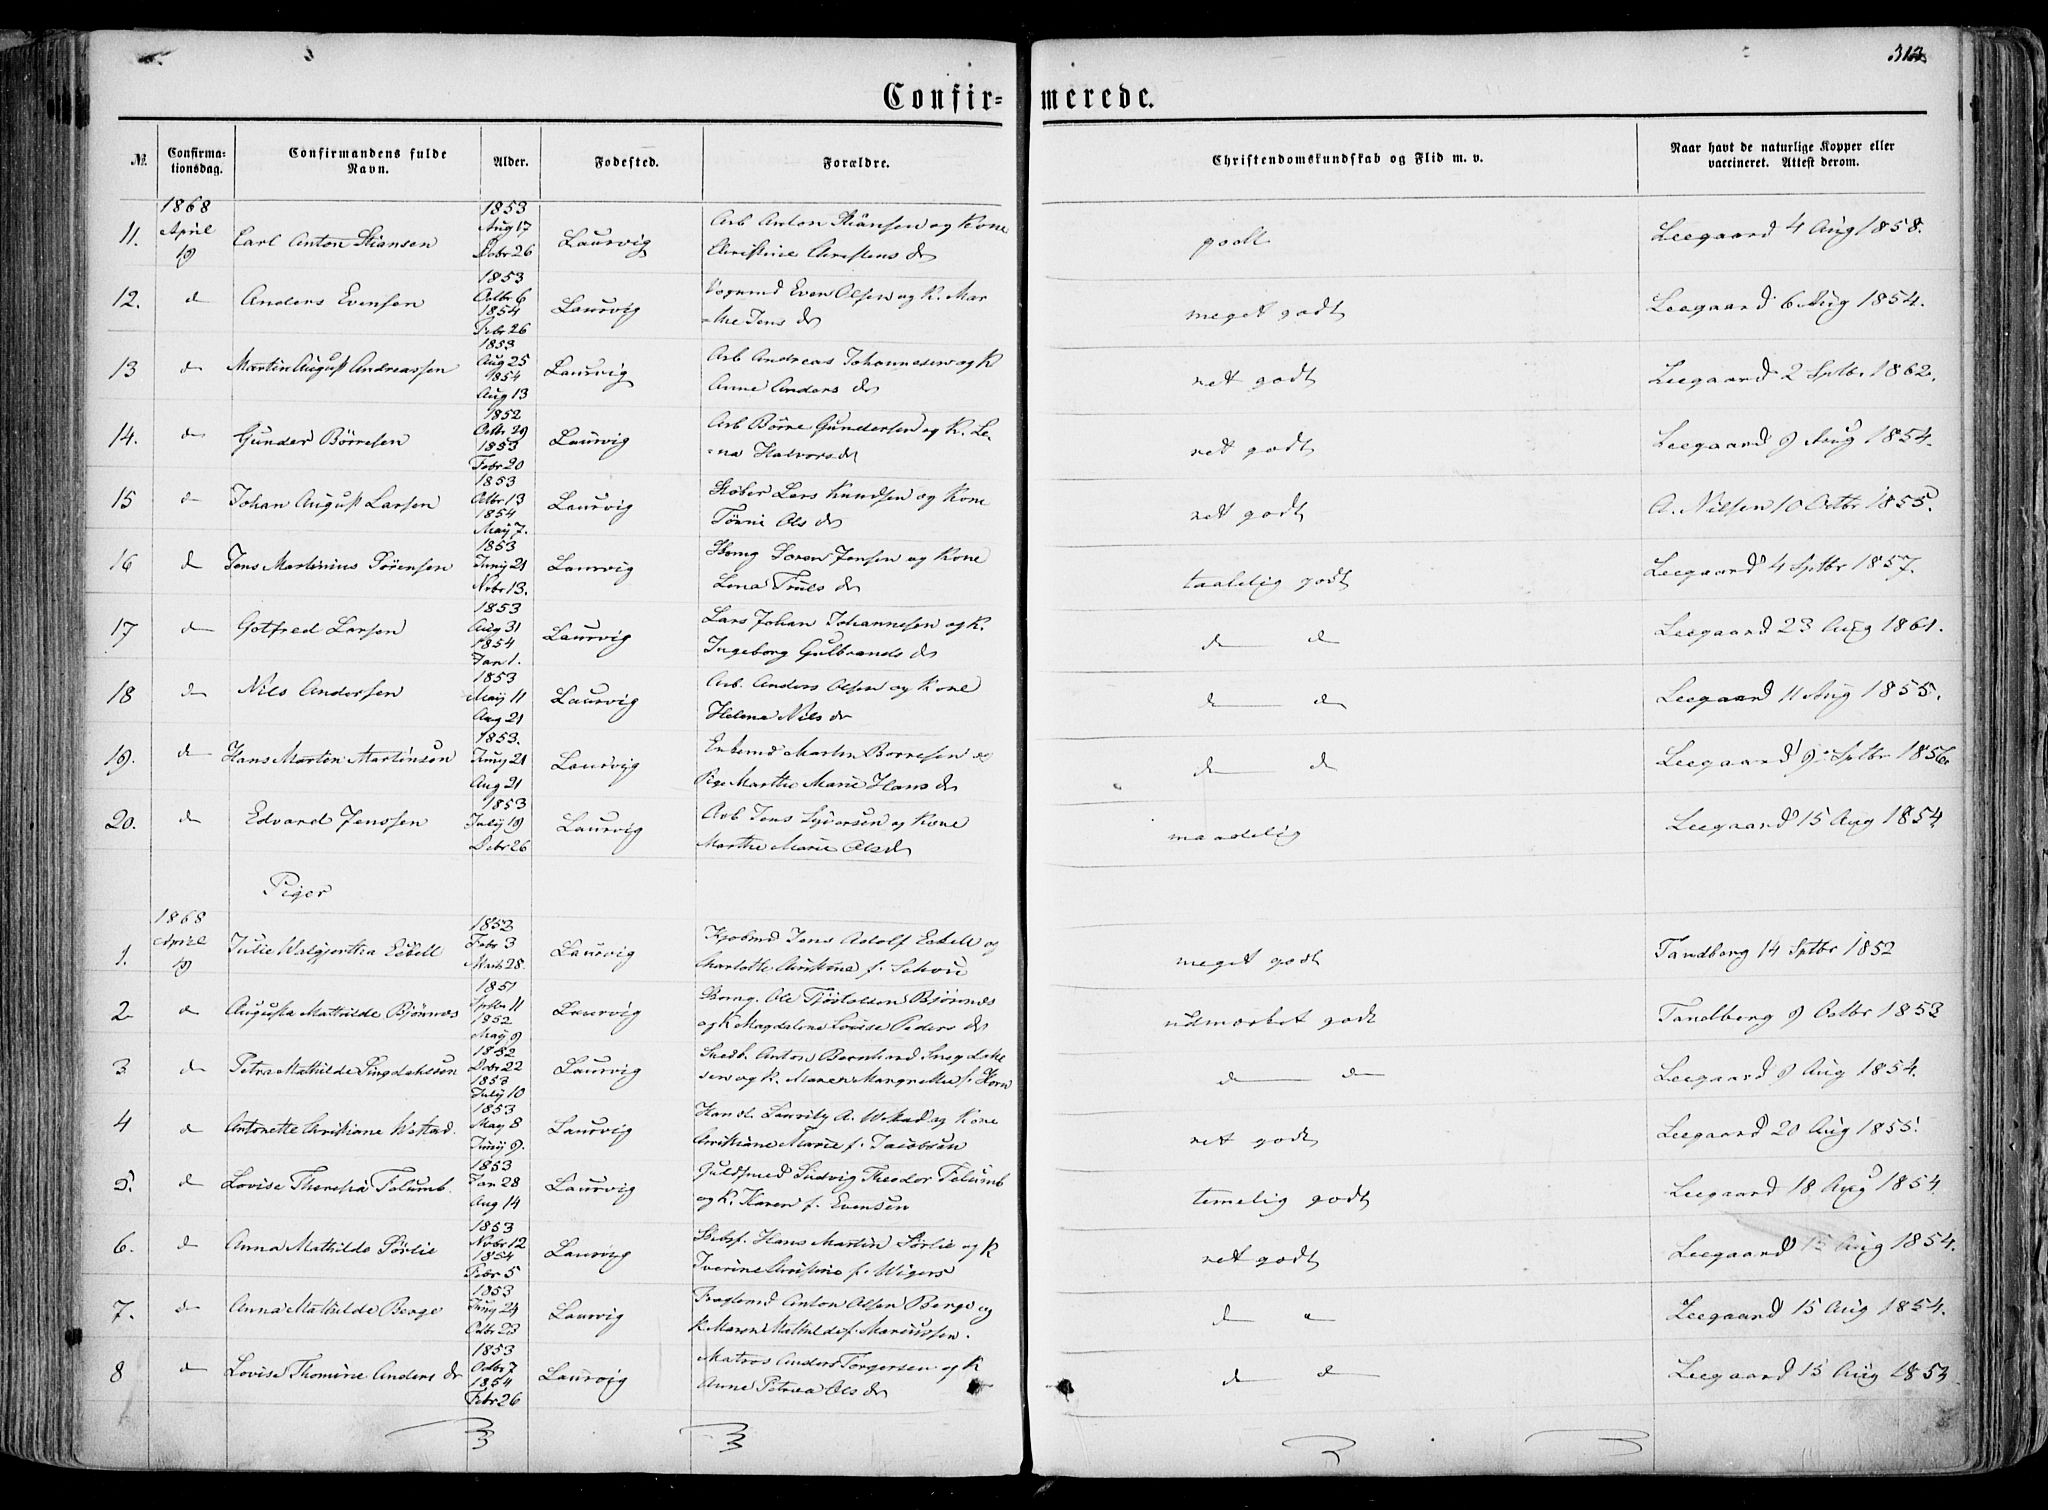 313
Confir- merede.
№ Confirma-tionsdag. Confirmandens fulde Navn. Alder. Fødested. Forældre. Christendomskundskab og Flid m. v. Naar havt de naturlige Kopper eller vaccineret. Attest derom.
1868 1853
11. April 19 Carl Anton Stiansen Aug 17 Debr 26 Laurvig Arb Anton Stiansen og Kone Christine Christens dr godt Leegaard 4 Aug 1858.
12. d Anders Evensen 1853 Octbr 6 1854 Febr 26 Laurvig Even Olsen og K. Mar=the Jens dr meget godt Leegaard 6 Aug 1854.
13 d Martin August Andreassen 1853 Aug 25 1854 Aug 13 Laurvig Arb Andreas Johannesen og K Anne Anders dr ret godt Leegaard 2 Sptbr 1862.
14. d Gunder Börresen 1852 Octbr 29 1853 Febr 20 Laurvig Arb Börre Gundersen og K. Le=na Halvors dr ret godt Leegaard 9 Aug 1854.
15 d Johan August Larsen 1853 Octbr 13 1854 Maij 7. Laurvig Lars Knudsen og Kone Ols dr ret godt A. Nilsen 10 Octbr 1855.
16 d Jens Martinius Sörensen 1853 Junij 21 Nobr 13. Laurvig Soren Jensen og Kone Lena Truls dr taalelig godt Leegaard 4 Sptbr 1857.
17 d Gotfred Larsen 1853 Aug 31 1854 Jan 1. Laurvig Lars Johan Johannesen og K. Ingeborg Gulbrands dr d d Leegaard 23 Aug 1861.
18 d Nils Andersen 1853 Maij 11 Aug 21 Laurvig Arb. Anders Olsen og Kone Helena Nils dr d d Leegaard 11 Aug 1855.
19. d Hans Martin Martinsen 1853. Junij 21 Aug 21 Laurvig Martin Borresen og Pge Marthe Marie Hans dr d d Leegaard 9 Sptbr 1856
20. d Edvard Jenssen 1853 Julij 19 Debr 26 Laurvig Arb Jens Syversen og Kone Marthe Marie Ols dr maadelig Leegaard 15 Aug 1854
Piger
1868 1852
1. April 19 Julie Febr 3 Marts 28. Laurvig Jens Adolf og Charlotte Christina f. Schou meget godt Tandberg 14 Sptbr 1852
2 d Augusta Mathilde Bjönnes 1851 Sptbr 11 1852 Maij 9 Laurvig Ole Bjönnes og K Magdalene Lovise Peders dr udmærket godt Tandberg 9 Octbr 1853
3 d Petra Mathilde 1852 Debr 22 1853 Julij 10 Laurvig Anton Bernhard og K. Maren Margrethe f. Horn d d Leegaard 9 Aug 1854.
4 d Antonette Christiane Westad. 1853 May 8 Junij 9. Laurvig Handl. A. Westad og Kone Christiane Marie f. Jacobsen ret godt Leegaard 20 Aug 1855.
5. d Lovise Theresia Felumb. 1853 Jan 28 Aug 14 Laurvig Guldsmed Ludvig Theodor Felumb og K. Karen f. Evensen temelig godt Leegaard 18 Aug 1854
6. d Anna Mathilde Sörlie 1853 Nobr 12 1854 Febr 5 Laurvig Hans Martin Sörlie og K Iverine Christine f. Wigers ret godt Leegaard 15 Aug 1854.
7. d Anna Mathilde Berge 1853 Junij 24 Octbr 23 Laurvig Anton Olsen Berge og K Maren Mathilde f. Mariussen. d d Leegaard 15 Aug 1854.
8 d Lovise Thomine Anders dr 1853 Octbr 7 1854 Febr 26 Laurvig Matros Anders Torgersen og K Anne Petrea Ols dr d d Leegaard 15 Aug 1853